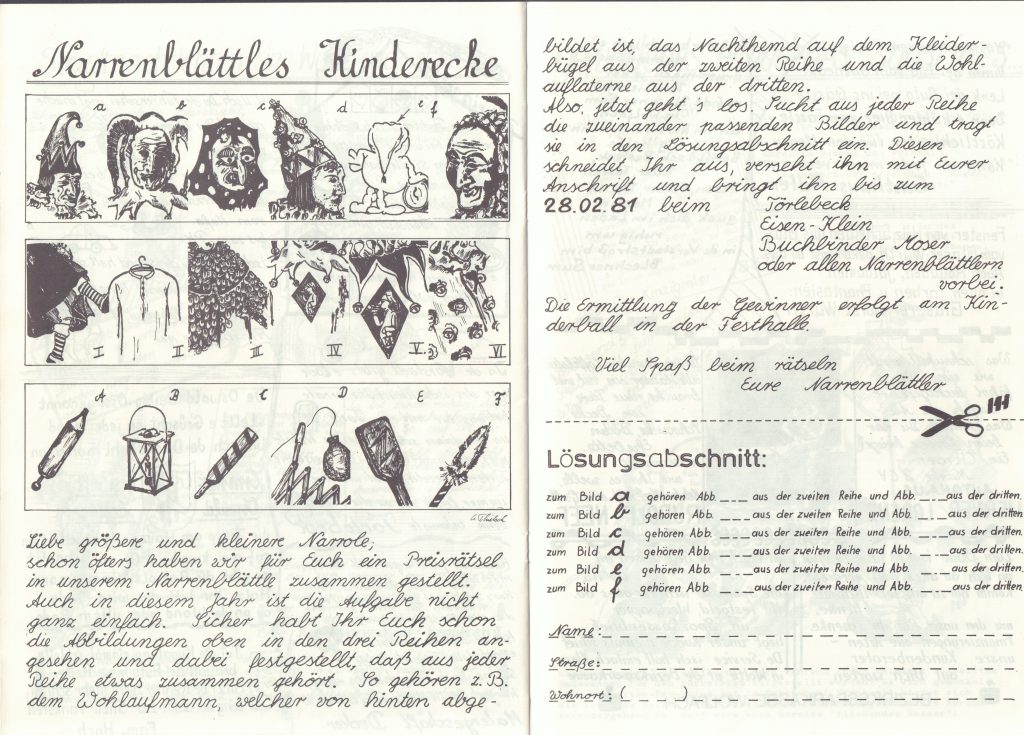 Narrenblättles Kinderecke
a b c d e f
I II III IV V. VI
A B C D E F
Liebe größere und kleinere Narrole,
schon öfters haben wir für Euch ein Preisrätsel
in unserem Narrenblättle zusammen gestellt.
Auch in diesem Jahr ist die Aufgabe nicht
ganz einfach. Sicher habt Ihr Euch schon
die Abbildungen oben in den drei Reihen an-
gesehen und dabei festgestellt, daß aus jeder
Reihe etwas zusammen gehört. So gehören z.B.
dem Wohlaufmann, welcher von hinten abge-
bildet ist, das Nachthemd auf dem Kleider-
bügel aus der zweiten Reihe und die Wohl-
auflaterne aus der dritten.
Also, jetzt geht's los. Sucht aus jeder Reihe
die zueinander passenden Bilder und tragt
sie in den Lösungsabschnitt ein. Diesen
schneidet Ihr aus, verseht ihn mit Eurer
Anschrift und bringt ihn bis zum
28.02.81 beim Törlebeck
Eisen-Klein
Buchbinder Moser
oder allen Narrenblättlern
vorbei.
Die Ermittlung der Gewinner erfolgt am Kin-
derball in der Festhalle.
Viel Spaß beim rätseln
Eure Narrenblättler
Lösungsabschnitt:
zum Bild a gehören Abb. ____ aus der zweiten Reihe und Abb. ____ aus der dritten.
zum Bild b gehören Abb. ____ aus der zweiten Reihe und Abb. ____ aus der dritten.
zum Bild c gehören Abb. ____ aus der zweiten Reihe und Abb. ____ aus der dritten.
zum Bild d gehören Abb. ____ aus der zweiten Reihe und Abb. ____ aus der dritten.
zum Bild e gehören Abb. ____ aus der zweiten Reihe und Abb. ____ aus der dritten.
zum Bild f gehören Abb. ____ aus der zweiten Reihe und Abb. ____ aus der dritten.
Name:
Straße:
Wohnort: ( )